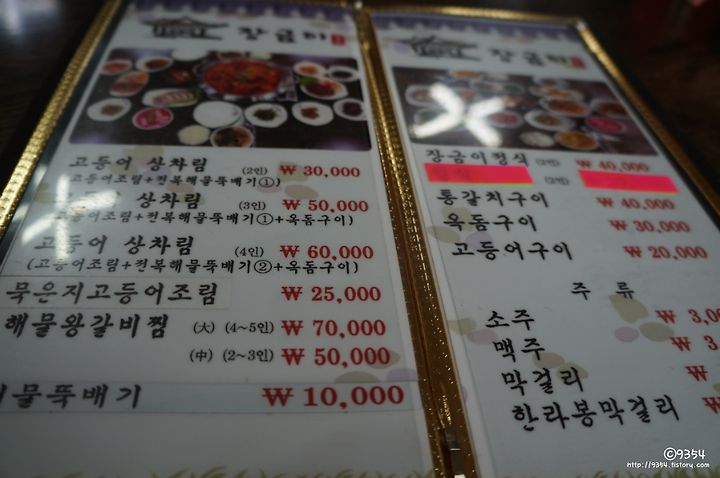 장금이
고등어 상차림 (2인) ₩ 30,000
고등어조림+전복해물뚝배기①
상차림 (3인) ₩ 50,000
고등어조림+전복해물뚝배기①+옥돔구이
고등어 상차림 (4인) ₩ 60,000
(고등어조림+전복해물뚝배기②+옥돔구이)
묵은지고등어조림 ₩ 25,000
해물왕갈비찜 (大) (4~5인) ₩ 70,000
(中) (2~3인) ₩ 50,000
해물뚝배기 ₩ 10,000
장금이
장금이정식 (2인) ₩ 40,000
(2인)
통갈치구이 ₩ 40,000
옥돔구이 ₩ 30,000
고등어구이 ₩ 20,000
주 류
소주 ₩ 3,0
맥주 ₩ 3
막걸리 ₩
한라봉막걸리 ₩
©9354
http://9354.tistory.com